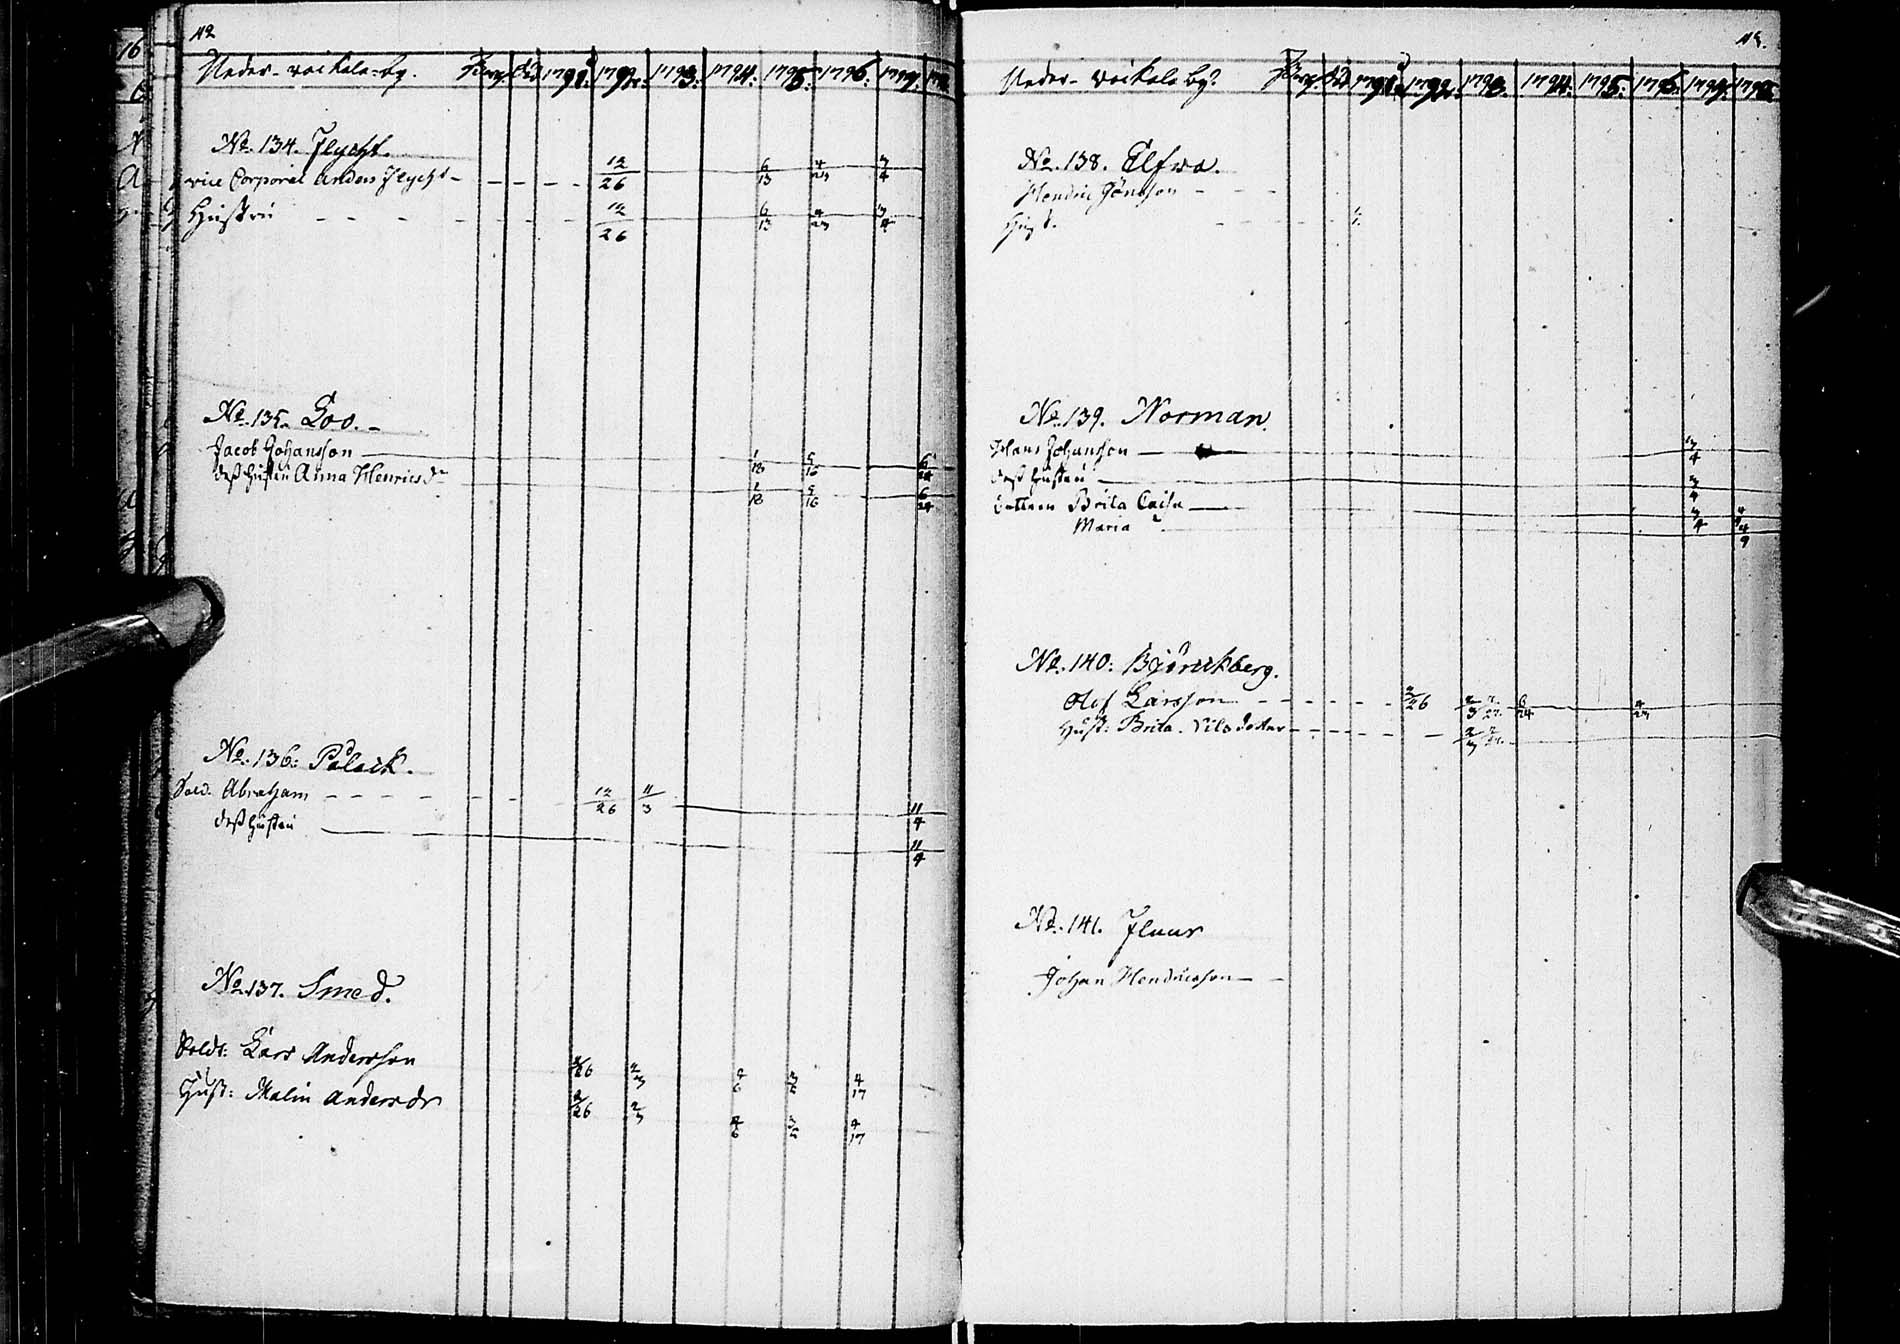 112
Neder-woikala-by. 1791. 1792. 1793. 1794. 1795. 1796. 1797.
No. 134. Flycht.
vice Corporal Anders Flycht 12/26 6/13 4/23 3/4
Hustru 12/26 6/13 4/23 3/4
No. 135. Loo.
Jacob Johansson 1/18 5/16 6/24
dess hustru Anna Henricsdr 1/18 5/16 6/24
No. 136: Palack.
Sold. Abraham 12/26 11/3 11/4
dess hustru 11/4
No. 137. Smed.
Sold: Lars Andersson 2/26 2/3 4/6 3/5 4/17
Hust: Malin Andersdr 2/26 2/3 4/6 3/5 4/17
113.
Neder-woikala by. 1791. 1792. 1793. 1794. 1795. 1796. 1797. 1798.
No. 138. Elfwa.
Hendric Jönsson
Hust.
No. 139. Norman.
Johans Johansson 3/4
dess hustru 3/4
dottren Brita Caisa 3/4
Maria 4/9
No. 140: Björckberg.
Olof Larsson 2/26 6/24 4/23
Hust: Brita Nilsdotter
No. 141. Fluur
Johan Hendricsson